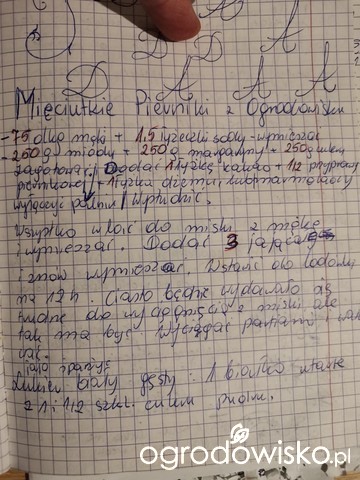 D D A
D A A A
Mięciutkie Pierniki z Ogrodowiska
-75 dkg mąki + 1,5 łyżeczki sody - wymieszać
-250 g miodu + 250 g margaryny + 250 g cukru
zagotować, Dodać 1 łyżkę kakao + 1/2 przyprawy
piernikowej + 1 łyżka dżemu, lub marmolady
wyłączyć palnik, Wystudzić.
Wszystko wlać do miski z mąką
i wymieszać. Dodać 3 jajca
i znów wymieszać. Wstawić do lodówy
na 12 h. Ciasto będzie wydawało się
trudne do wyciągnięcia z miski ale
tak ma być. Wyciągać partiami i
jajo sparzyć
Lukier biały gęsty: 1 białko utarte
z 1 i 1/2 szkl. cukru pudru.
ogrodowisko.pl